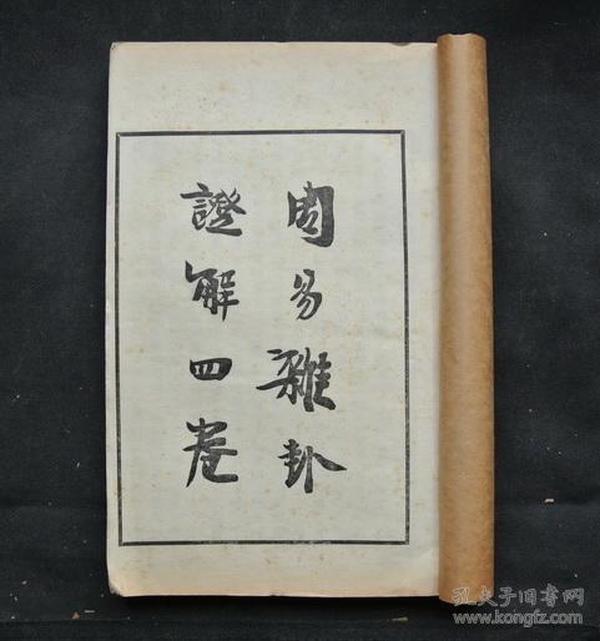 周易雜卦
證解四卷
孔夫子旧书网
www.kongfz.com